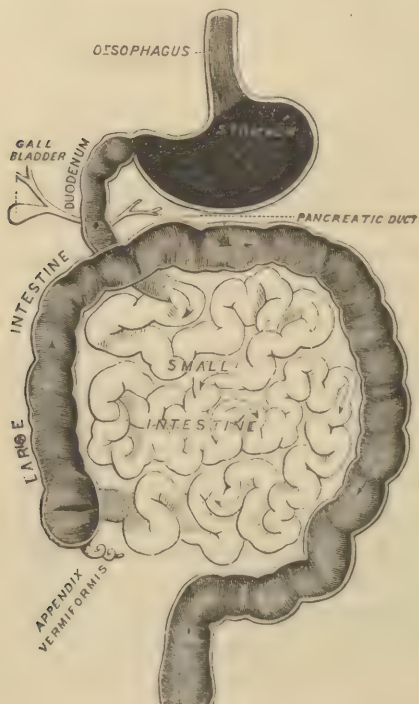 OESOPHAGUS
STOMACH
GALL
BLADDER
DUODENUM
PANCREATIC DUCT
LARGE INTESTINE
SMALL
INTESTINE
APPENDIX
VERMIFORMIS